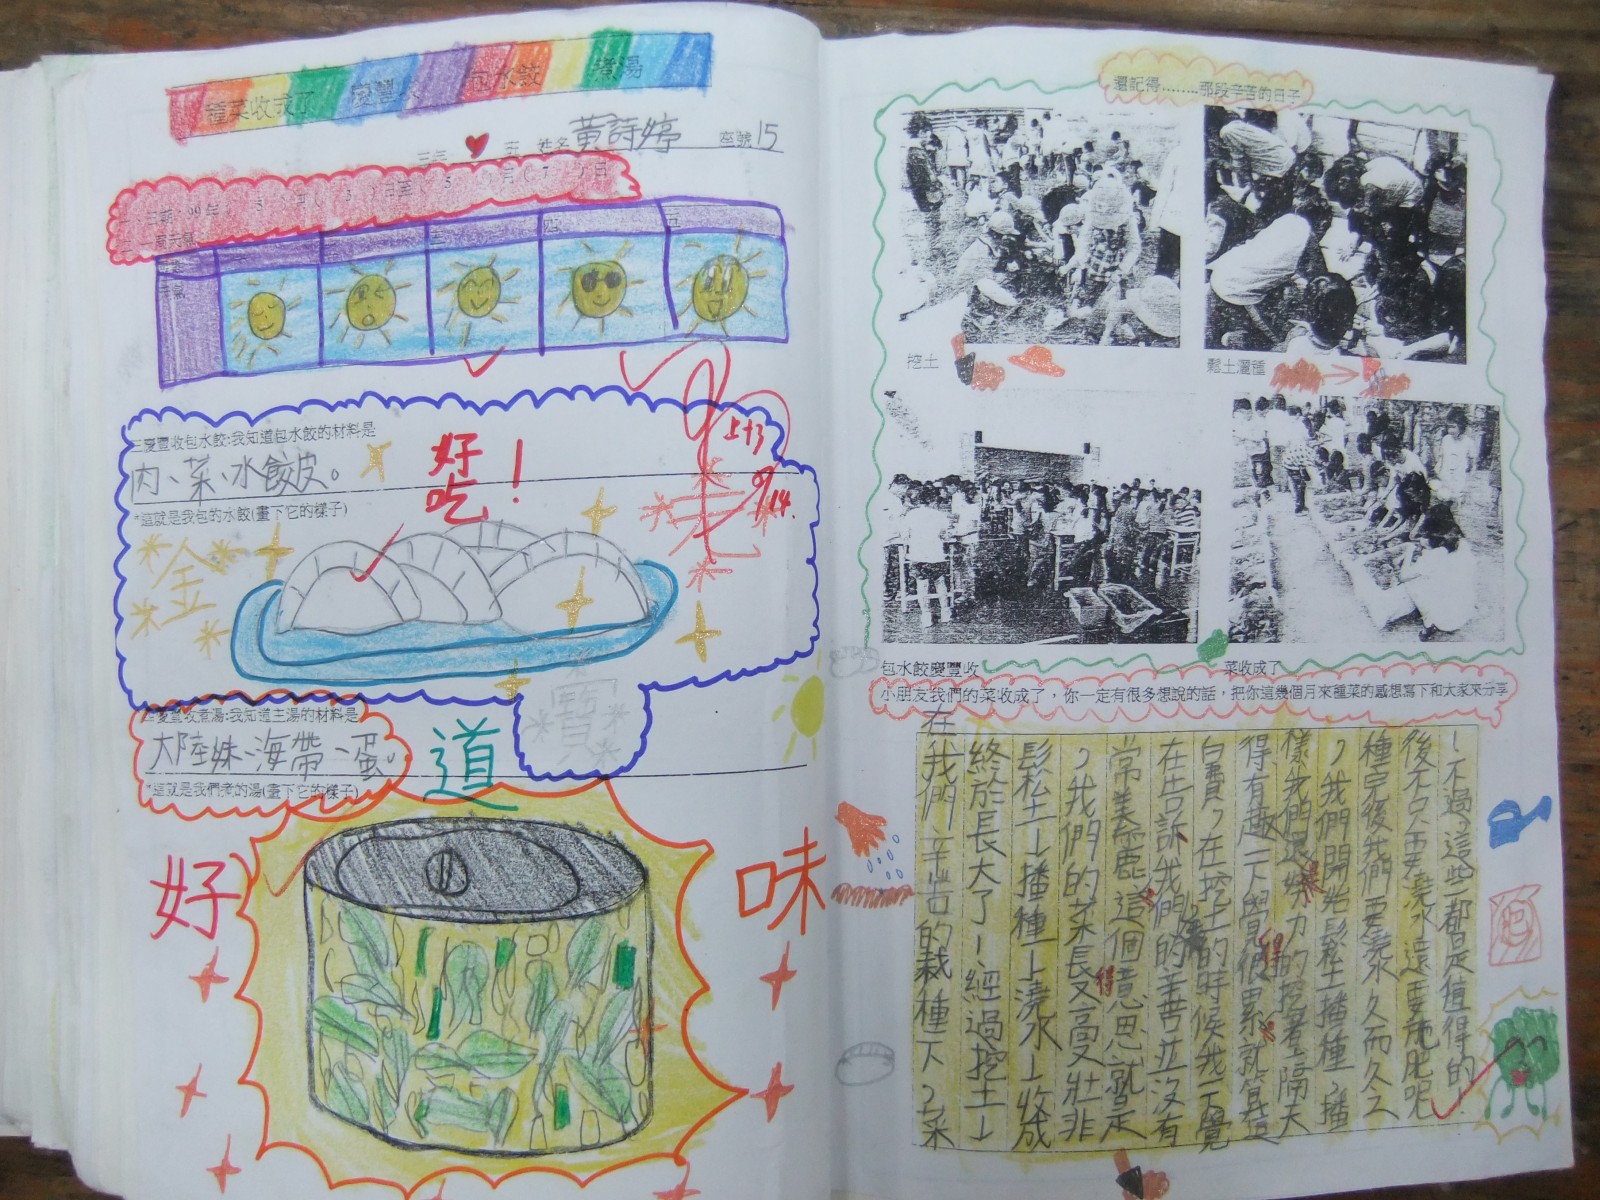 種菜收成了 慶豐收 包水餃 煮湯
姓名 黃詩婷 座號 15
四
五
三慶豐收包水餃:我知道包水餃的材料是
肉、菜、水餃皮。
*這就是我包的水餃(畫下它的樣子)
好吃！
上+3
9/14
金
慶豐收煮湯:我知道主湯的材料是
大陸妹、海帶、蛋。
*這就是我們煮的湯(畫下它的樣子)
好
味
道
還記得........那段辛苦的日子
挖土
鬆土灑種
包水餃慶豐收
菜收成了
小朋友我們的菜收成了，你一定有很多想說的話，把你這幾個月來種菜的感想寫下和大家來分享
在我們辛苦的栽種下，菜
終於長大了！經過挖土、
鬆土、播種、澆水、收成
，我們的菜長得又高又壯非
常美麗這個意思就是
在告訴我們的辛苦並沒有
白費，在挖土的時候我不覺
得有趣只覺得很累就算這
樣我們還努力的挖著隔天
，我們開始鬆土播種，播
種完後我們要澆水久而久之
後不只要澆水還要施肥呢
！不過這些都是值得的！